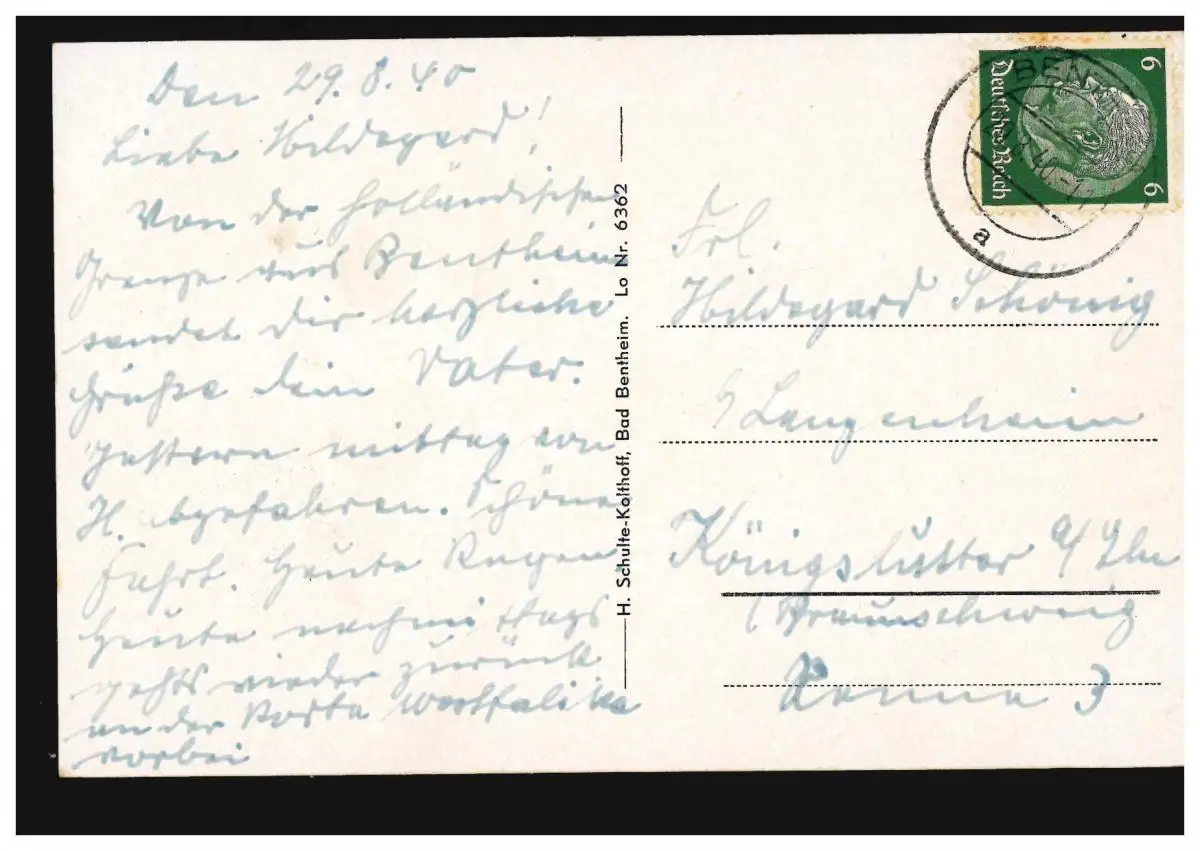 Den 29.8.40
Liebe Hildegard!
Von der holländischen
Grenze aus Bentheim
sendet dir herzliche
Grüße dein Vater.
Gestern mittag von
H. abgefahren. Schöne
Fahrt. Heute Regen.
Heute nachmittags
gehts wieder zurück
an der Porta Westfalika
vorbei
H. Schulte-Kolthoff, Bad Bentheim. Lo Nr. 6362
Deutsches Reich
6
6
BEN
a
Frl.
Hildegard Schönig
Langenheim
Königslutter a/Elm
(Braunschweig
3